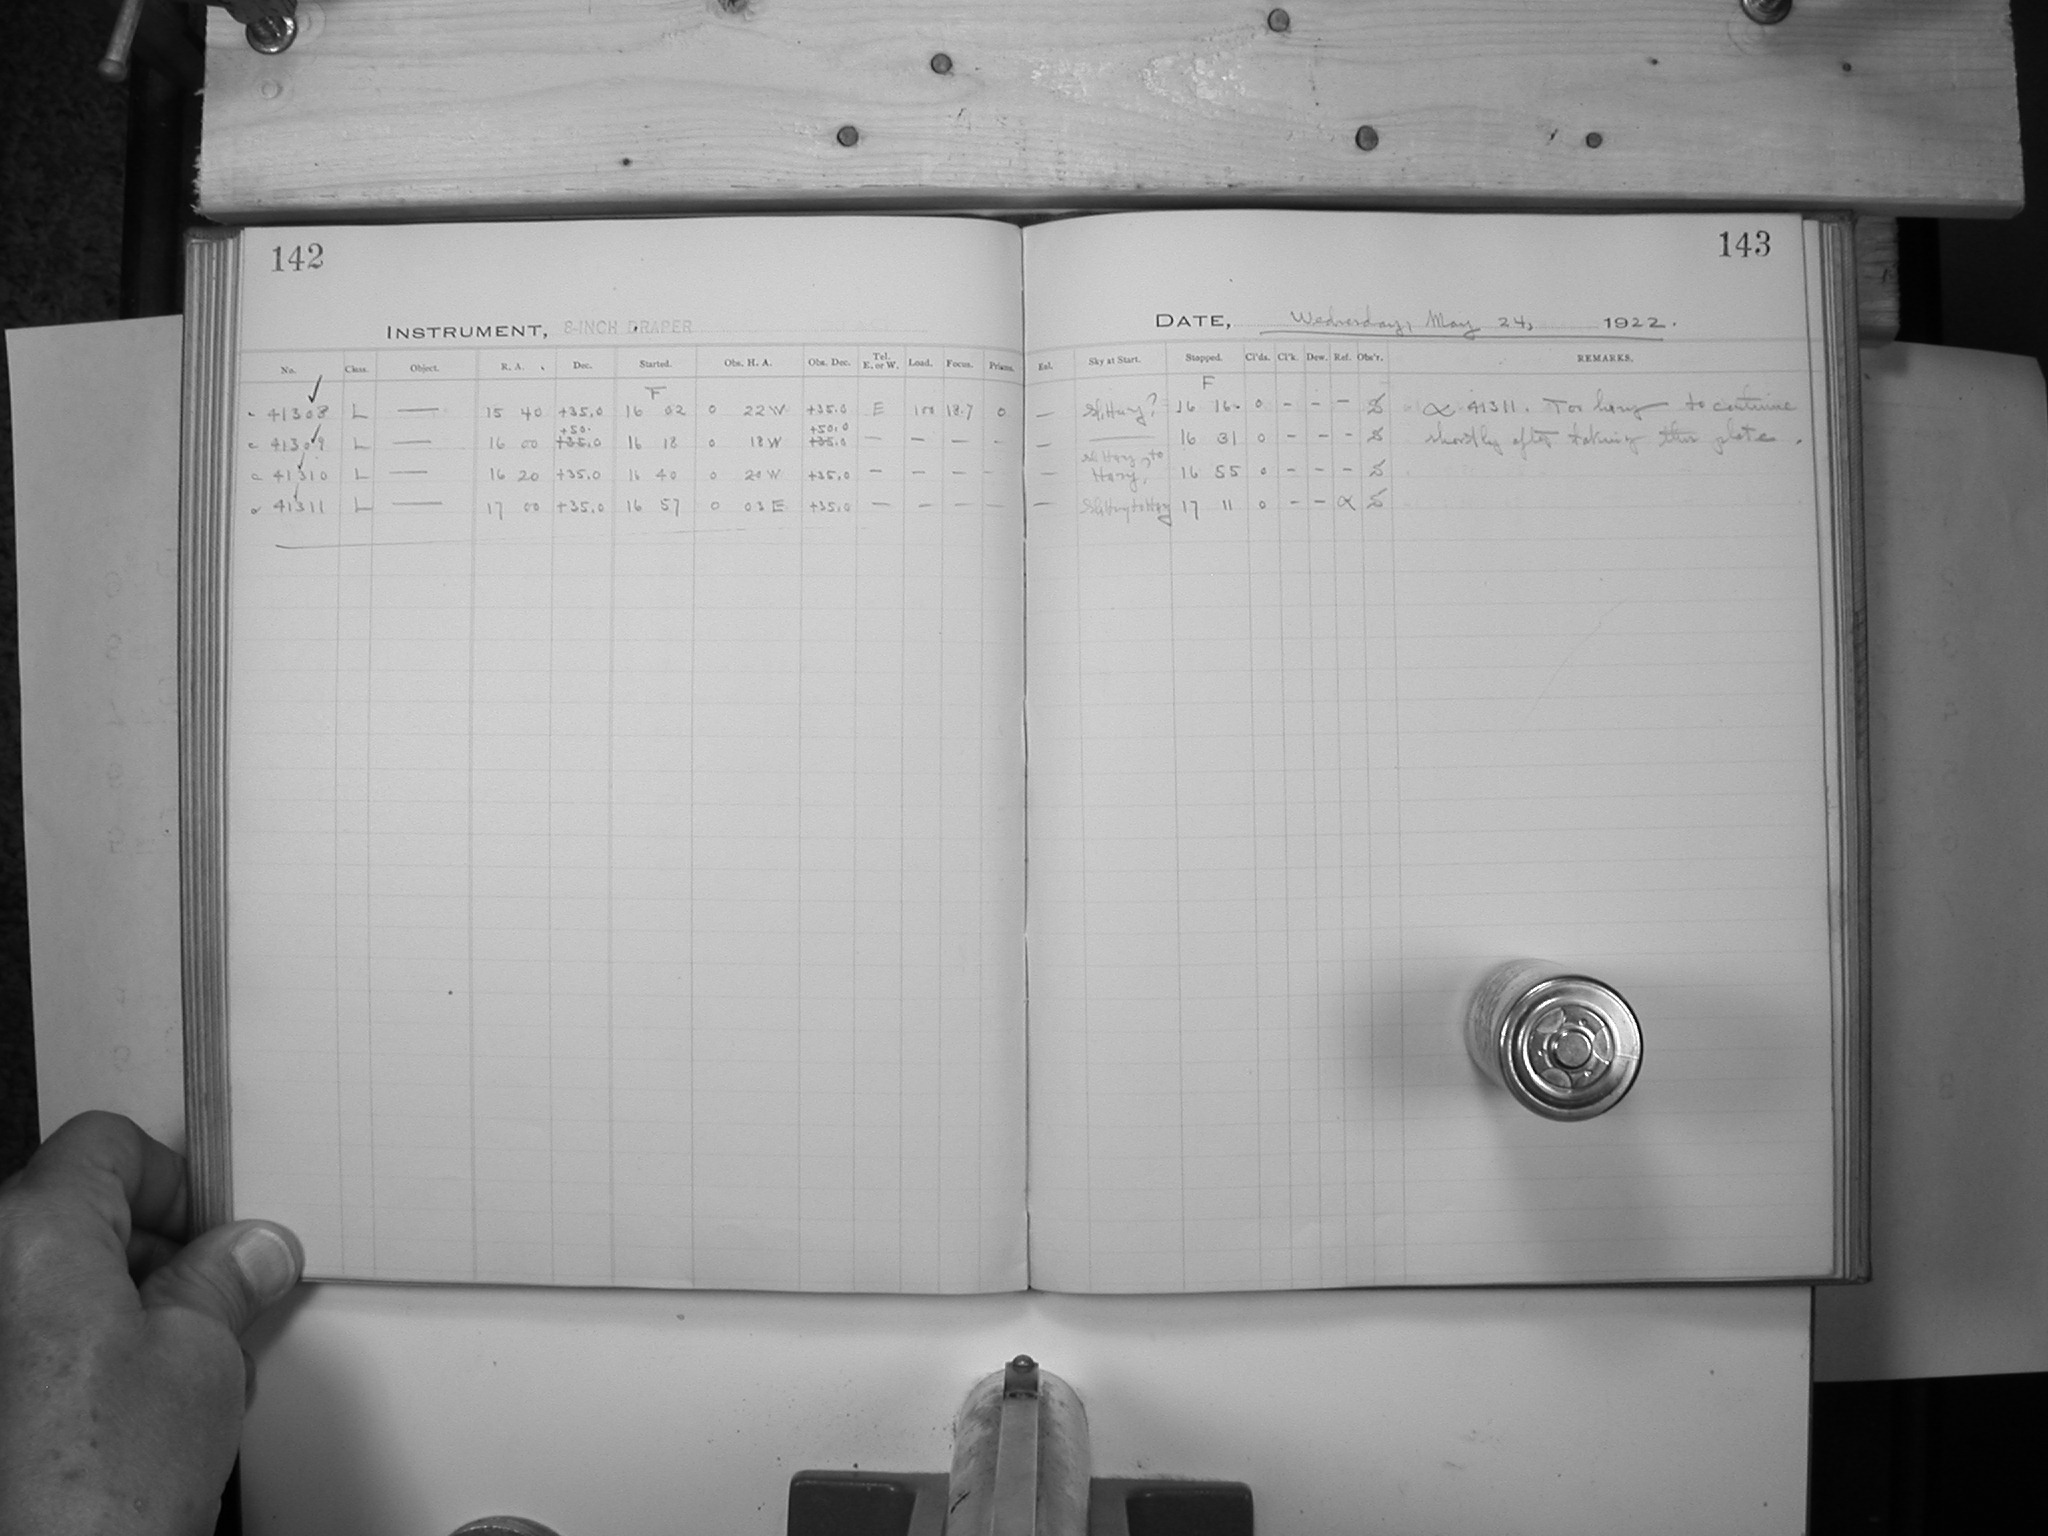 142
143
INSTRUMENT, 8-INCH DRAPER
DATE, Wednesday, May 24, 1922.
No. Class. Object. R. A. Dec. Started. Obs. H. A. Obs. Dec. Tel. E. or W. Load. Focus. Prisms. Exl. Sky at Start. Stopped. Cl'ds. Cl'k. Dew. Ref. Obs'r. REMARKS.
F F
41308 L — 15 40 +35.0 16 02 0 22 W +35.0 E 100 18.7 0 — Sl. Hazy? 16 16 0 - - - α 41311. Too hazy to continue
+50. +50.0
41309 L — 16 00 +35.0 16 18 0 18 W +35.0 — — — — — — 16 31 0 - - - shortly after taking this plate.
41310 L — 16 20 +35.0 16 40 0 20 W +35.0 — — — — — Sl. Hazy to Hazy, 16 55 0 - - -
41311 L — 17 00 +35.0 16 57 0 03 E +35.0 — — — — — Sl. Hazy to Hazy 17 11 0 - - α